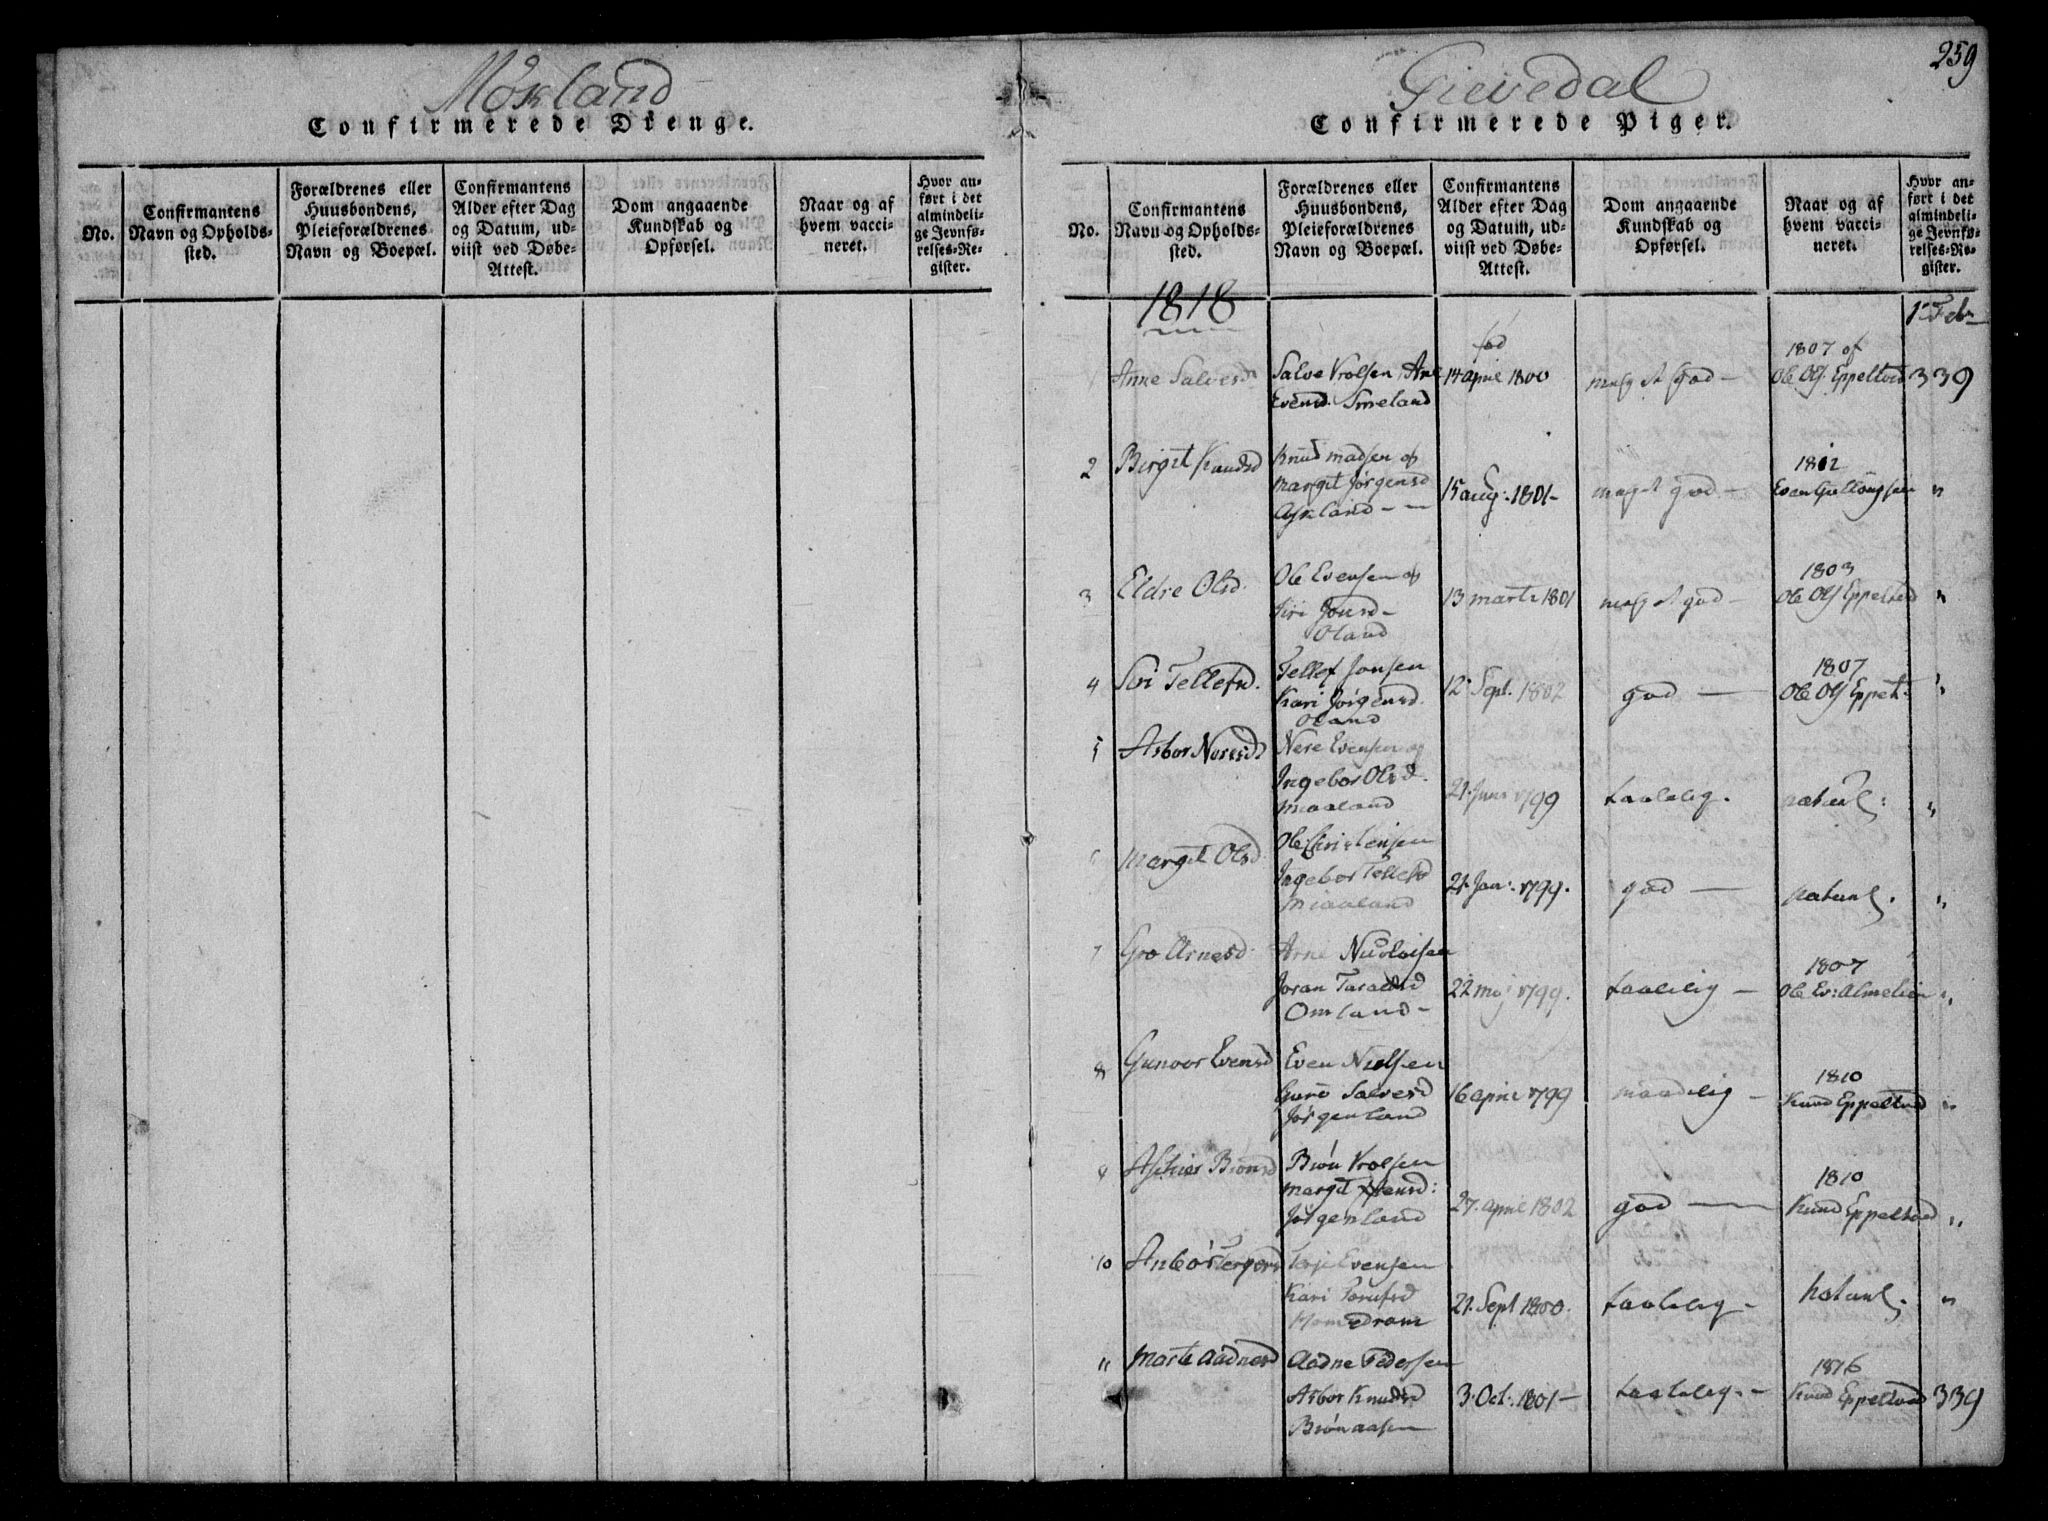 Mørland
Confirmerede Drenge.
No.
Confirmantens
Navn og Opholds-
sted.
Forældrenes eller
Huusbondens,
Pleieforældrenes
Navn og Boepæl.
Confirmantens
Alder efter Dag
og Datum, ud-
viist ved Døbe-
Attest.
Dom angaaende
Kundskab og
Opførsel.
Naar og af
hvem vacci-
neret.
Hvor an-
ført i det
almindeli-
ge Jevnfø-
relses-Re-
gister.
259
Gievedal
Confirmerede Piger.
No.
Confirmantens
Navn og Opholds-
sted.
Forældrenes eller
Huusbondens,
Pleieforældrenes
Navn og Boepæl.
Confirmantens
Alder efter Dag
og Datum, ud-
viist ved Døbe-
Attest.
Dom angaaende
Kundskab og
Opførsel.
Naar og af
hvem vacci-
neret.
Hvor an-
ført i det
almindeli-
ge Jevnfø-
relses-Re-
gister.
1818
1 Feb
Anne Salvesd
Salve Vrolsen, Ane
Evensd. Smeland
fød
14 april 1800
meget god —
1807 af
Ole Ols. Eppeltved
339
2
Birgit Knudsd
Knud Madsen og
Margit Jørgensd
Askland — —
15 aug: 1801 –
meget god —
1812
Even
"
3
Eldre Olsd.
Ole Evensen og
Siri Jonsd –
Oland
13 marti 1801
meget god –
1803
Ole Ols Eppeltved
"
4
Siri Tellefsd.
Tellef Jonsen
Kari Jørgensd.
Oland
12 Sept. 1802
god —
1807
Ole Ols Eppelt:
"
5
Asbor Neresd
Nere Evensen og
Ingebor Olsd.
Miaaland
21. Juni 1799
taalelig.
naturl:
"
6
Margit Olsd
Ole Christensen
Ingebor Tellefsd
Miaaland
21. Jan: 1799.
god —
naturl.
"
7
Gro Arnesd
Arne
Joran Taraldsd
Omland –
22 maj 1799.
taalelig –
1807
Ole Ev: Almelien
"
8
Gunvor Evensd
Even Nielsen
Guro Salvesd
Jørgenland
16 april 1799
maadelig –
1810
Knud Eppeltved
"
9
Biønsd
Biøn Vrolsen
Margit
Jørgenland
27. april 1802
god —
1810
Knud Eppeltved
"
10
Anbør Tergesd
Terje Evensen
Kari
Homdrom
21. Sept 1800.
taalelig –
naturl.
"
11
Marte Aadnesd
Aadne Pedersen
Asbor Knudsd
Biønaasen
3. Oct: 1801 –
taalelig. –
1816
Knud Eppeltved
339